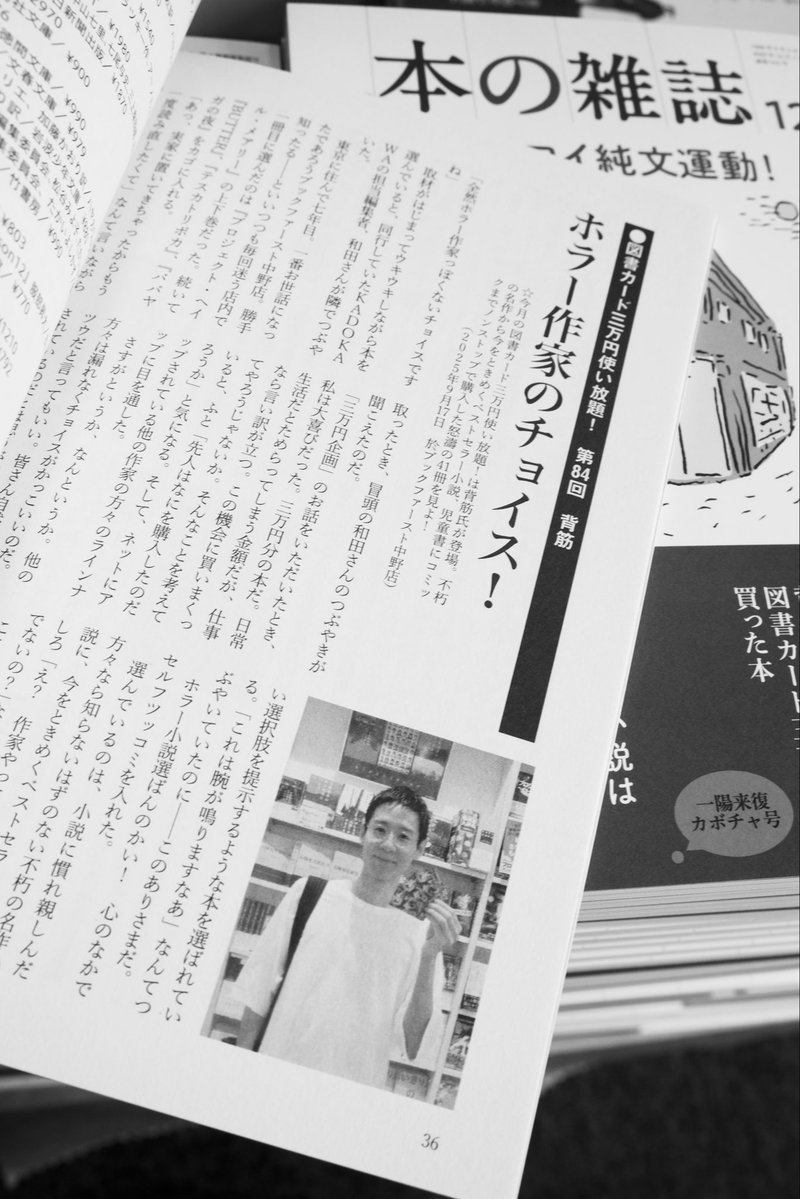 本の雑誌
純文運動！
●図書カード三万円使い放題！　第84回　背筋
ホラー作家のチョイス！
☆今月の図書カード三万円使い放題！は背筋氏が登場。不朽
の名作から今をときめくベストセラー小説、児童書にコミッ
クまでノンストップで購入した怒濤の41冊を見よ！
（2025年9月17日　於ブックファースト中野店）
「全然ホラー作家っぽくないチョイスです
ね」
取材がはじまってウキウキしながら本を
選んでいると、同行していたKADOKA
WAの担当編集者、和田さんが隣でつぶや
いた。
東京に住んで七年目。一番お世話になっ
たであろうブックファースト中野店。勝手
知ったる――といいつつも毎回迷う店内で
一冊目に選んだのは『プロジェクト・ヘイ
ル・メアリー』の上下巻だった。続いて
『BUTTER』、『テスカトリポカ』、『ババヤ
ガの夜』をカゴに入れる。
「あっ、実家に置いてきちゃったからもう
一度読み直したくて」なんて言いながら
取ったとき、冒頭の和田さんのつぶやきが
聞こえたのだ。
「三万円企画」のお話をいただいたとき、
私は大喜びだった。三万円分の本だ。日常
生活だとためらってしまう金額だが、仕事
なら言い訳が立つ。この機会に買いまくっ
てやろうじゃないか。そんなことを考えて
いると、ふと「先人はなにを購入したのだ
ろうか」と気になる。そして、ネットにア
ップされている他の作家の方々のラインナ
ップに目を通した。
さすがというか、なんというか。他の
方々は漏れなくチョイスがかっこいい。
ツウだと言ってもいい。皆さん
い選択肢を提示するような本を選ばれてい
る。「これは腕が鳴りますなあ」なんてつ
ぶやいていたのに――このありさまだ。
ホラー小説選ばんのかい！　心のなかで
セルフツッコミを入れた。
選んでいるのは、小説に慣れ親しんだ
方々なら知らないはずのない不朽の名作
説に、今をときめくベストセラ
しろ「え？　作家やって
でないの？」
36
図書カード三
買った本
説は
一陽来復
カボチャ号